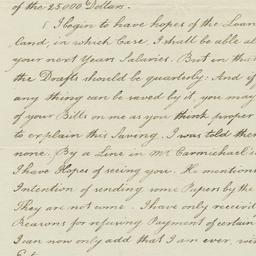 of the 25000 Dollars.
I begin to have hopes of the Loan
land, in which Case, I shall be able a
your next Years Salaries. But in that
the Drafts should be quarterly: And if
any thing can be saved by it, you may
of your Bills on me as you think proper
to explain this Saving. I was told ther
none. By a Line in Mr Carmichael's
I have Hopes of seeing you. He mention
Intention of sending some Papers by the
They are not come. I have only receiv
Reasons for refusing Payment of certain
I can now only add that I am ever, wit